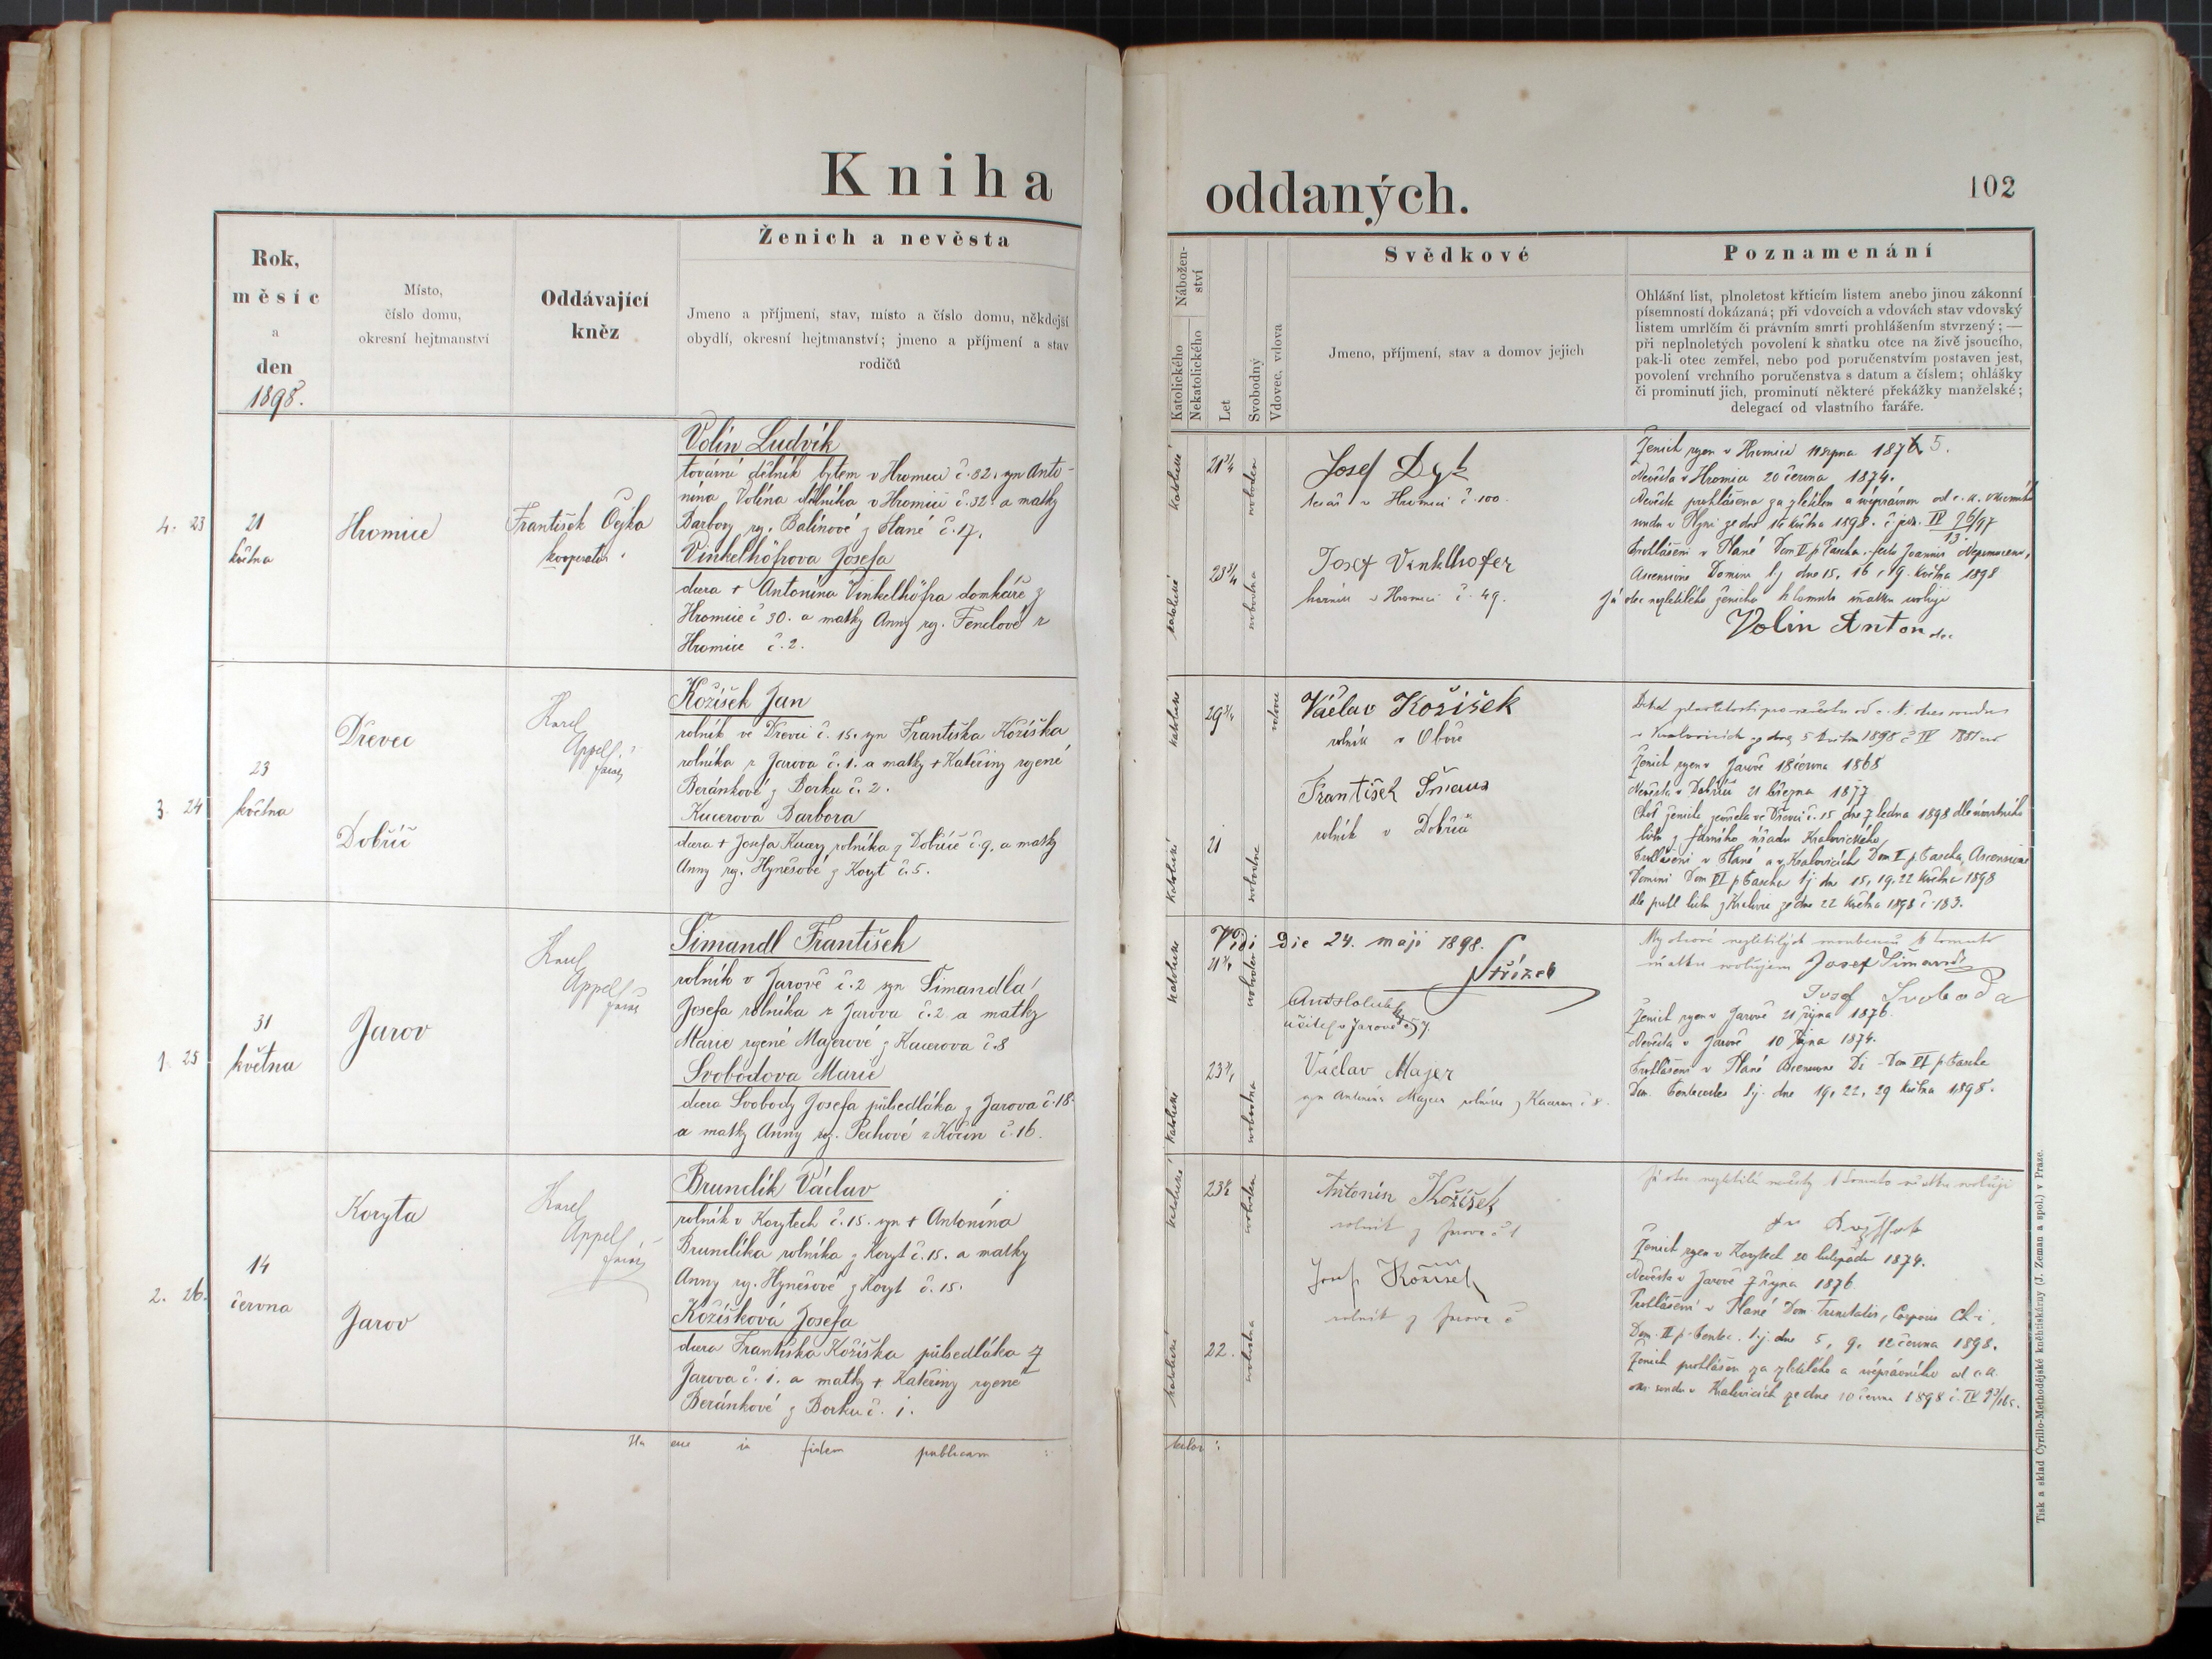 Kniha
oddaných.
102
Rok,
měsíc
a
den
1898.
Místo,
číslo domu,
okresní hejtmanství
Oddávající
kněz
Ženich a nevěsta
Jmeno a příjmení, stav, místo a číslo domu, někdejší
obydlí, okresní hejtmanství; jmeno a příjmení a stav
rodičů
Nábožen-
ství
Katolického
Nekatolického
Let
Svobodný
Vdovec, vdova
Svědkové
Jmeno, příjmení, stav a domov jejich
Poznamenání
Ohlášní list, plnoletost křticím listem anebo jinou zákonní
písemností dokázaná; při vdovcích a vdovách stav vdovský
listem umrlčím či právním smrti prohlášením stvrzený; —
při neplnoletých povolení k sňatku otce na živě jsoucího,
pak-li otec zemřel, nebo pod poručenstvím postaven jest,
povolení vrchního poručenstva s datum a číslem; ohlášky
či prominutí jich, prominutí některé překážky manželské;
delegací od vlastního faráře.
4. 23
21
května
Hromice
František Čejka
kooperator
Volín Ludvík
tovární dělník bytem v Hromici č. 32. syn Anto-
nína Volína dělníka v Hromici č. 32 a matky
Barbory roz. Balínové z Plané č. 17.
Vinkelhöfrova Josefa
dcera + Antonína Vinkelhöfra domkáře z
Hromice č 30. a matky Anny roz. Fenclové z
Hromice č. 2.
katolické
21 3/4
svoboden
katolické
23 3/4
svobodna
Josef Dyk
v Hromici č. 100.
Josef Vinklhofer
horník v Hromici č. 49.
Ženich rozen v Hromici 11 srpna 1876. 5.
Nevěsta v Hromici 20 června 1874.
Nevěsta prohlášena za zletilou a svéprávnou od c. k. okresního
soudu v Plzni ze dne 16 května 1898. č. jed. IV 96/97
13.
Prohlášeni v Plané Dom V p Pascha, festo Joannis Nepomuceni,
Ascensione Domini t.j dne 15, 16, 19. května 1898
Já otec nezletilého ženicha k tomuto sňatku svoluji
Volin Anton otec
3. 24
23
května
Dřevec
Dobříč
Karel
Appelt
farář
Kožíšek Jan
rolník ve Dřevci č. 15. syn Františka Kožíška
rolníka z Jarova č. 1. a matky + Kateřiny rozené
Beránkové z Borku č. 2.
Kucerová Barbora
dcera + Josefa Kucery rolníka z Dobříče č. 9. a matky
Anny roz. Hynešové z Koryt č. 5.
katolické
29 3/4
vdovec
katolické
21
svobodna
Václav Kožíšek
rolník v Oboře
František Šmaus
rolník v Dobříči
v Kralovicích ze dne 5 května 1898 č IV
Ženich rozen v Jarově 18 června 1868
Nevěsta v Dobříči 21 března 1877
Choť ženicha zemřela ve Dřevci č. 15 dne 7 ledna 1898 dle úmrtního
listu z farního úřadu Kralovického,
Prohlášeni v Plané a v Kralovicích Dom V p Pascha, Ascensione
Domini Dom VI p Pascha t.j. dne 15, 19, 22 května 1898
dle listu z Kralovic ze dne 22 května 1898 č 183.
1. 25
31
května
Jarov
Karel
Appelt
farář
Šimandl František
rolník v Jarově č. 2 syn Šimandla
Josefa rolníka z Jarova č. 2 a matky
Marie rozené Majerové z Kacerova č. 8
Svobodova Marie
dcera Svobody Josefa půlsedláka z Jarova č. 18.
a matky Anny roz. Pechové z Kočín č. 16.
katolické
21 3/4
svoboden
katolické
23 3/4
svobodna
Vidi die 24. maji 1898.
Střížek
učitel v Jarově č 57.
Václav Majer
syn Antonína Majera rolníka z Kacerova č 8.
My otcové nezletilých snoubenců k tomuto
sňatku svolujem Josef Šimandl
Josef Svoboda
Ženich rozen v Jarově 21 října 1876.
Nevěsta v Jarově 10 října 1874.
Prohlášeni v Plané Ascensione Di - Dom VI p Pascha
Dom. Pentecostes t.j. dne 19, 22, 29 května 1898.
2. 26.
14
června
Koryta
Jarov
Karel
Appelt
farář
Brundlík Václav
rolník v Korytech č. 15. syn + Antonína
Brundlíka rolníka z Koryt č. 15. a matky
Anny roz. Hynešové z Koryt č. 15.
Kožíšková Josefa
dcera Františka Kožíška půlsedláka z
Jarova č. 1. a matky + Kateřiny rozené
Beránkové z Borku č. 1.
katolické
23 1/2
svoboden
katolické
22.
svobodna
Antonín Kožíšek
rolník z Jarova č 1
Josef Kožíšek
rolník z Jarova č
Já otec nezletilé nevěsty k tomuto sňatku svoluji
Ženich rozen v Korytech 20 listopadu 1874.
Nevěsta v Jarově 7 října 1876
Prohlášeni v Plané Dom. Trinitatis, Corporis Ch-i,
Dom. II p. Pentec. t.j. dne 5, 9, 12 června 1898.
Ženich prohlášen za zletilého a svéprávného od c. k.
okr. soudu v Kralovicích ze dne 10 června 1898 č. IV
in fidem publicam
Tisk a sklad Cyrillo-Methodějské knihtiskárny (J. Zeman a spol.) v Praze.